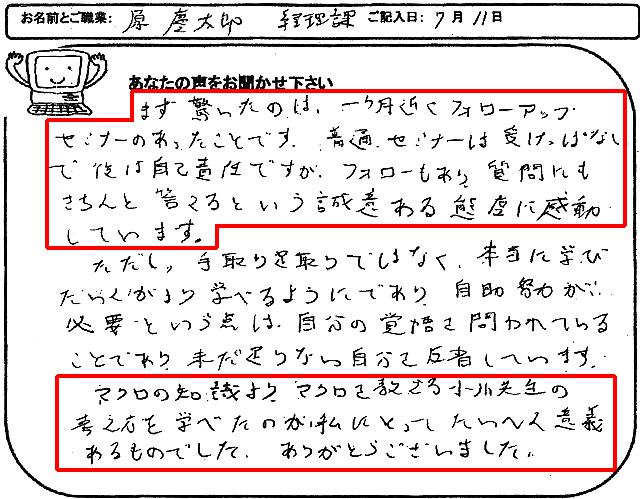 お名前とご職業: 原 慶太郎 経理課 ご記入日: 7月11日
あなたの声をお聞かせ下さい
まず驚いたのは、一ヶ月近くフォローアップ
セミナーのあったことです。普通、セミナーは受けっぱなし
で後は自己責任ですが、フォローもあり、質問にも
きちんと答えるという誠意ある態度に感動
しています。
ただし、手取り足取りではなく、本当に学び
たい人がより学べるようにであり、自助努力が
必要という点は、自分の覚悟を問われている
ことであり、未だ足りない自分を反省しています。
マクロの知識より、マクロを教える小川先生の
考え方を学べたのが私にとってたいへん意義
あるものでした。ありがとうございました。